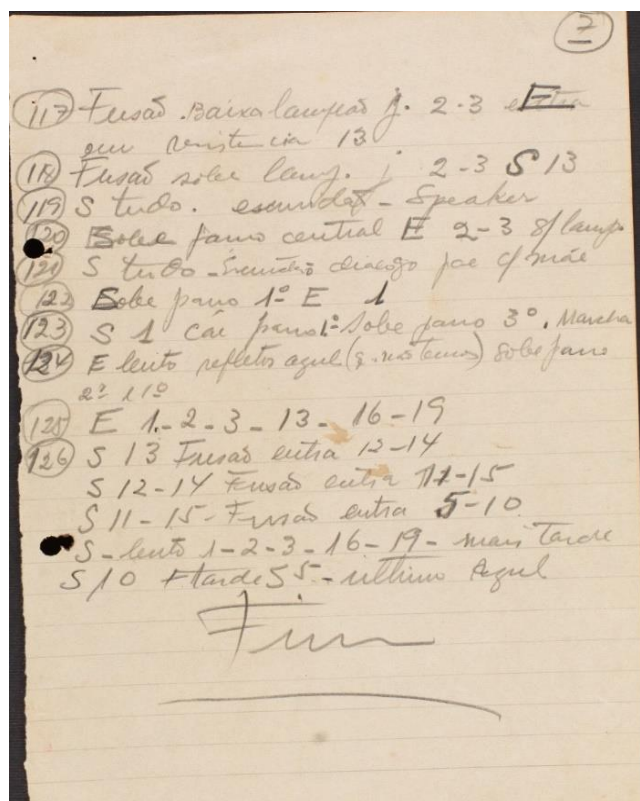 7
117 Fusão. Baixa lampeão j. 2-3 E
em resistencia 13
118 Fusão sobe lamp. j 2-3 S 13
119 S tudo. escuridão - Speaker
120 Sobe pano central E 2-3 s/ lamp
121 S tudo - Escuridão dialogo pae c/ mãe
122 Sobe pano 1º E 1
123 S 1 Cai pano 1º Sobe pano 3º. Marcha
124 E lento refletor azul (q. não temos) sobe pano
2º e 1º
125 E 1-2-3-13-16-19
126 S 13 Fusão entra 12-14
S 12-14 Fusão entra 11-15
S 11-15 - Fusão entra 5-10
S-lento 1-2-3-16-19- mais tarde
S 10 + tarde S 5.- ultimo Azul
Fim